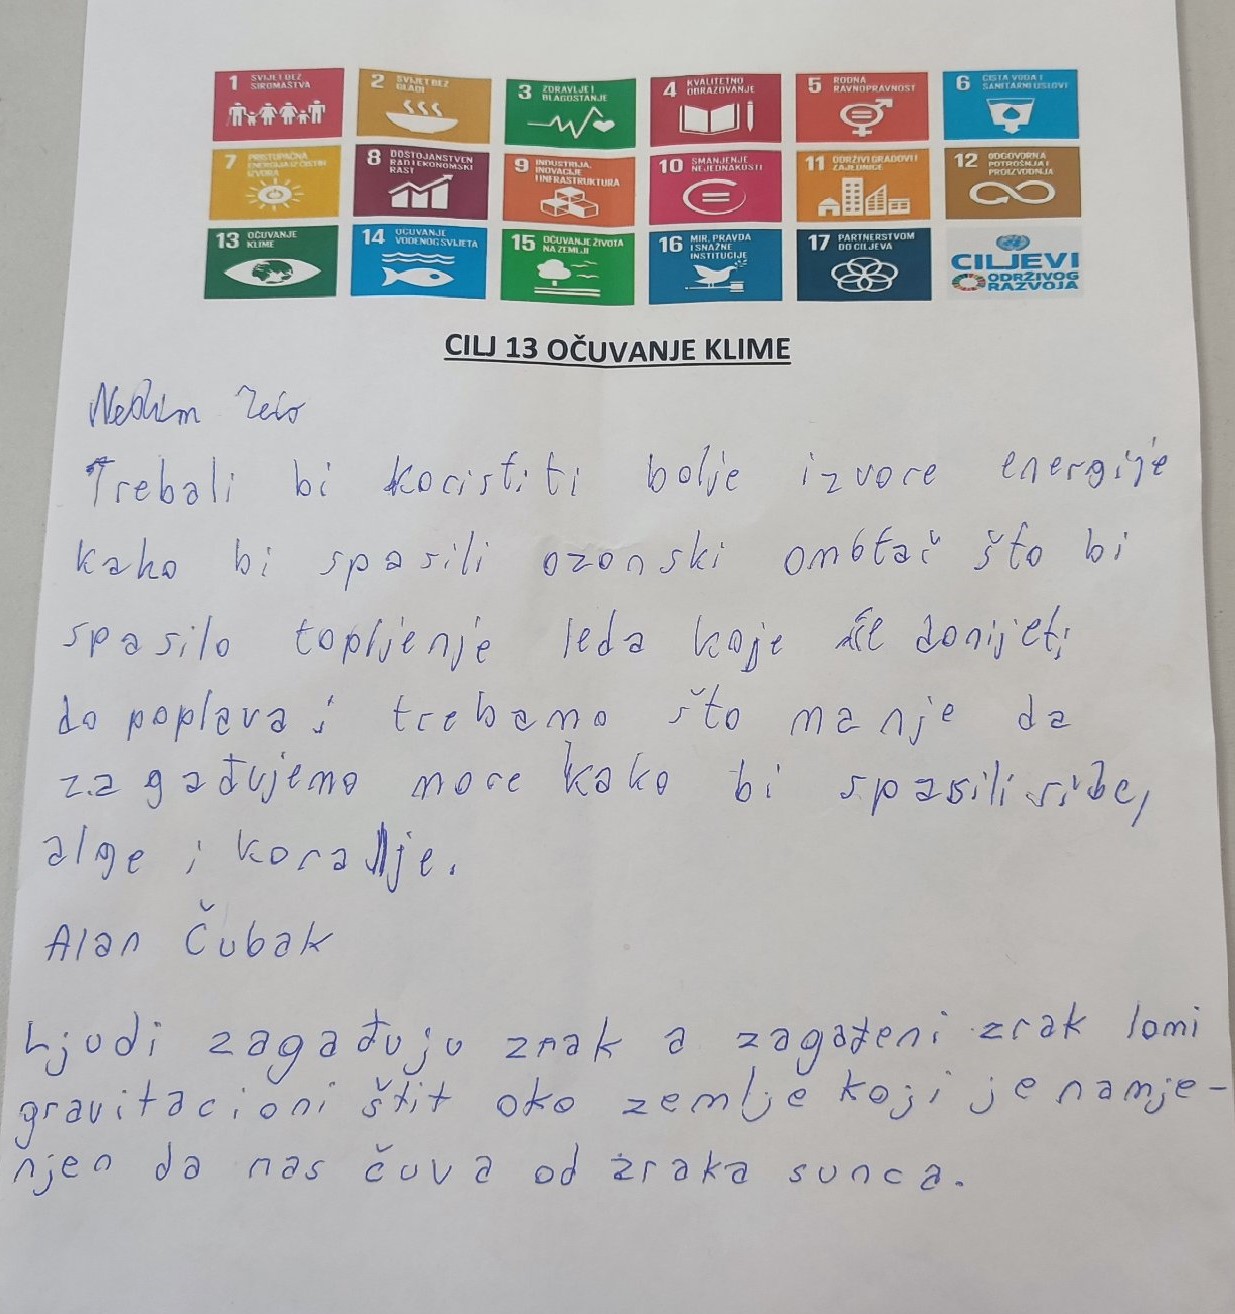 1 SVIJET BEZ SIROMAŠTVA
2 SVIJET BEZ GLADI
3 ZDRAVLJE I BLAGOSTANJE
4 KVALITETNO OBRAZOVANJE
5 RODNA RAVNOPRAVNOST
6 ČISTA VODA I SANITARNI USLOVI
7 PRISTUPAČNA ENERGIJA IZ ČISTIH IZVORA
8 DOSTOJANSTVEN RAD I EKONOMSKI RAST
9 INDUSTRIJA, INOVACIJE I INFRASTRUKTURA
10 SMANJENJE NEJEDNAKOSTI
11 ODRŽIVI GRADOVI I ZAJEDNICE
12 ODGOVORNA POTROŠNJA I PROIZVODNJA
13 OČUVANJE KLIME
14 OČUVANJE VODENOG SVIJETA
15 OČUVANJE ŽIVOTA NA ZEMLJI
16 MIR, PRAVDA I SNAŽNE INSTITUCIJE
17 PARTNERSTVOM DO CILJEVA
CILJEVI
ODRŽIVOG
RAZVOJA
CILJ 13 OČUVANJE KLIME
Trebali bi koristiti bolje izvore energije
kako bi spasili ozonski što bi
spasilo topljenje leda koje će donijeti
do poplava i trebamo što manje da
zagađujemo more kako bi spasili ribe,
alge i koralje.
Alan Čubak
Ljudi zagađuju zrak a zagađeni zrak lomi
gravitacioni štit oko zemlje koji je namje-
njen da nas čuva od zraka sunca.